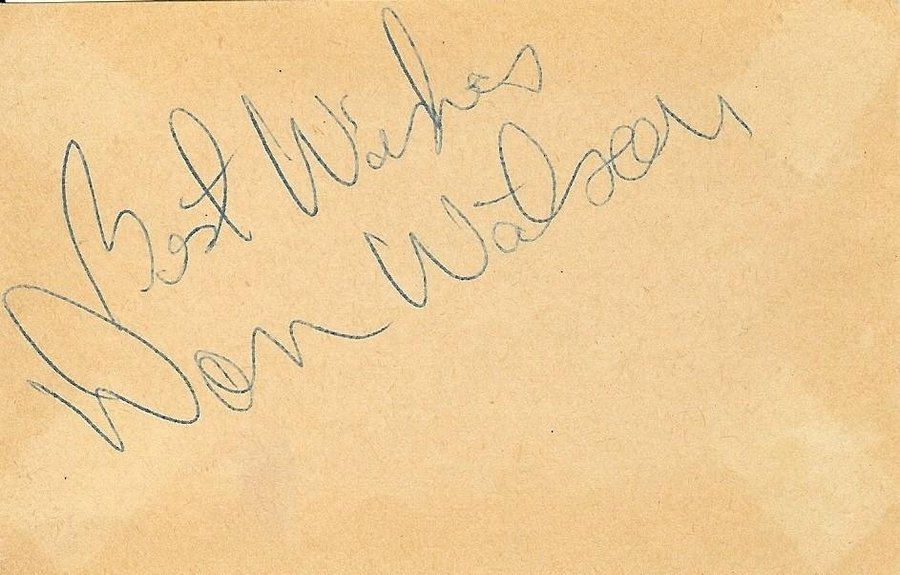 Best Wishes
Don Watson